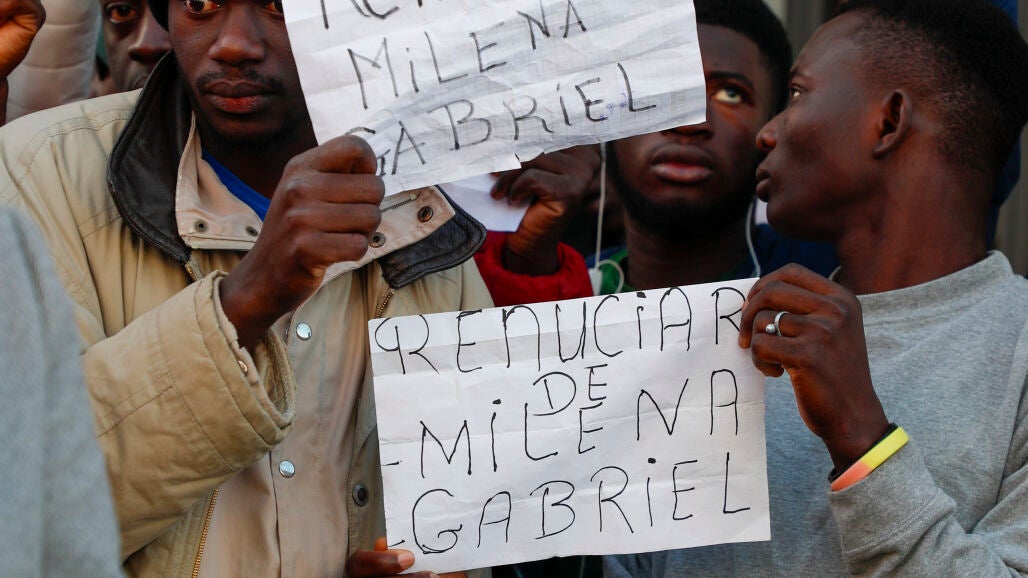 MILENA
GABRIEL
RENUCIAR
DE
-MILENA
-GABRIEL